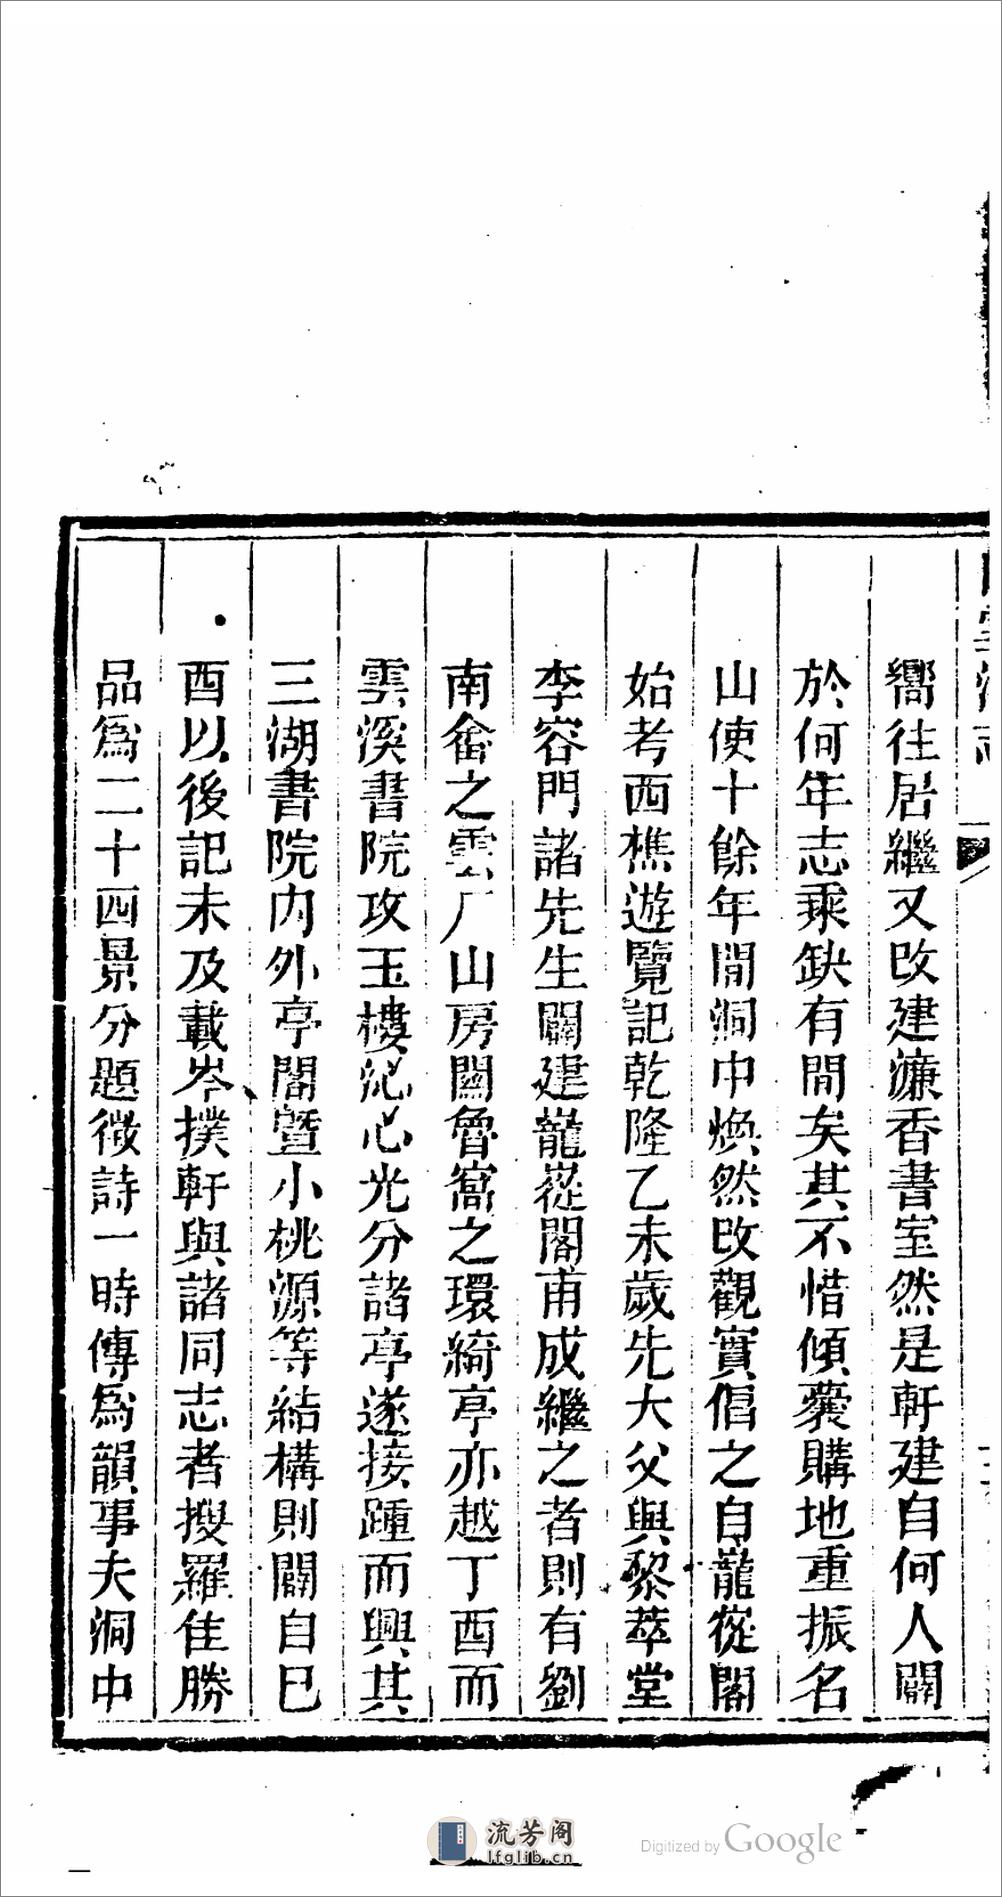 嚮往居繼又改建濂香書室然是軒建自何人闢
於何年志乘缺有間矣其不惜傾囊購地重振名
山使十餘年間洞中煥然改觀實倡之自巃嵸閣
始考西樵遊覽記乾隆乙未歲先大父與黎萃堂
李容門諸先生闢建巃嵸閣甫成繼之者則有劉
南畬之雲厂山房關魯窩之環綺亭亦越丁酉而
雲溪書院攻玉樓沁心光分諸亭遂接踵而興其
三湖書院內外亭閣暨小桃源等結構則闢自己
酉以後記未及載岑撲軒與諸同志者搜羅佳勝
品爲二十四景分題徵詩一時傳爲韻事夫洞中
流芳阁
lfglib.cn
Digitized by Google